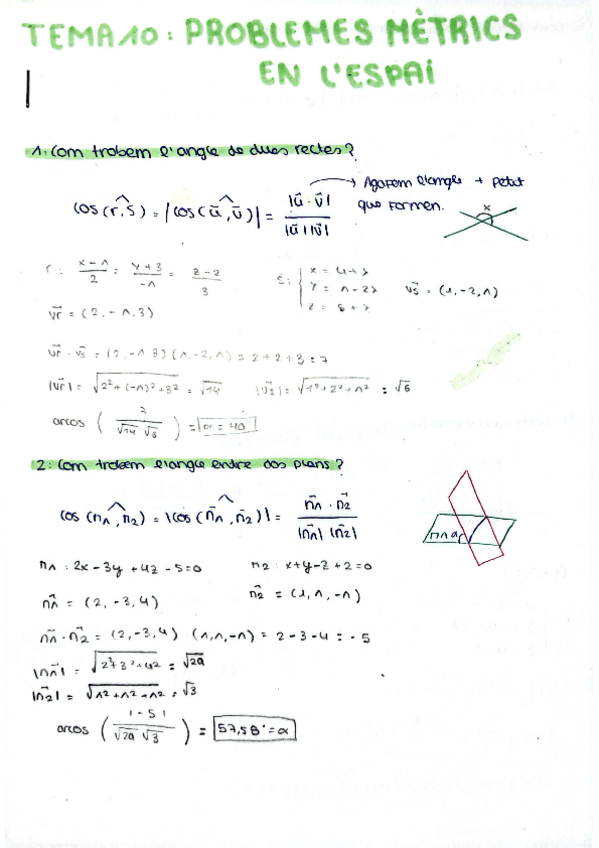 TEMA 10: PROBLEMES MÈTRICS
EN L'ESPAI
1. Com trobem l'angle de dues rectes?
cos(r,s) = |cos(u⃗,v⃗)| = |u⃗·v⃗| / |u⃗||v⃗| → Agafem l'angle + petit
que formen.
α
r: (x-1)/2 = (y+3)/-1 = (z-2)/3
s: { x = 4+λ
y = 1-2λ
z = 5+λ
v⃗s = (1,-2,1)
v⃗r = (2,-1,3)
v⃗r · v⃗s = (2,-1,3)(1,-2,1) = 2+2+3 = 7
|v⃗r| = √2²+(-1)²+3² = √14 |v⃗2| = √1²+2²+1² = √6
arcos (7 / √14 √6) = α = 40
2. Com trobem l'angle entre dos plans?
cos(π1,π2) = |cos(n⃗1,n⃗2)| = n⃗1·n⃗2 / |n⃗1| |n⃗2|
π1: 2x-3y+4z-5=0 π2: x+y-z+2=0
n⃗1 = (2,-3,4) n⃗2 = (1,1,-1)
n⃗1·n⃗2 = (2,-3,4)·(1,1,-1) = 2-3-4 = -5
|n⃗1| = √2²+3²+4² = √29
|n⃗2| = √1²+1²+1² = √3
arcos (|-5| / √29 √3) = 57,58° = α